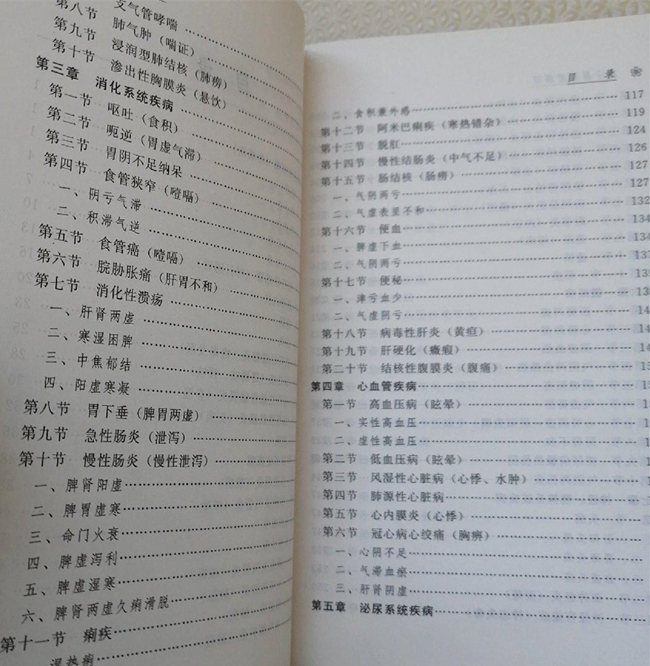 第八节 支气管哮喘
第九节 肺气肿（喘证）
第十节 浸润型肺结核（肺痨）
渗出性胸膜炎（悬饮）
第三章 消化系统疾病
第一节 呕吐（食积）
第二节 呃逆（胃虚气滞）
第三节 胃阴不足纳呆
第四节 食管狭窄（噎嗝）
一、阴亏气滞
二、积滞气逆
第五节 食管癌（噎嗝）
第六节 脘胁胀痛（肝胃不和）
第七节 消化性溃疡
一、肝肾两虚
二、寒湿困脾
三、中焦郁结
四、阳虚寒凝
第八节 胃下垂（脾胃两虚）
第九节 急性肠炎（泄泻）
第十节 慢性肠炎（慢性泄泻）
一、脾肾阳虚
二、脾胃虚寒
三、命门火衰
四、脾虚泻利
五、脾虚湿寒
六、脾肾两虚久痢滑脱
第十一节 痢疾
湿热痢
目 录
二、食积兼外感 117
第十二节 阿米巴痢疾（寒热错杂） 119
第十三节 脱肛 124
第十四节 慢性结肠炎（中气不足） 126
第十五节 肠结核（肠痨） 127
一、气阴两亏 127
二、气虚表里不和 132
第十六节 便血 134
一、脾虚下血
二、气阴两亏
第十七节 便秘
一、津亏血少
二、气虚阴亏
第十八节 病毒性肝炎（黄疸）
第十九节 肝硬化（癥瘕）
第二十节 结核性腹膜炎（腹痛）
第四章 心血管疾病
第一节 高血压病（眩晕）
一、实性高血压
二、虚性高血压
第二节 低血压病（眩晕）
第三节 风湿性心脏病（心悸、水肿）
第四节 肺源性心脏病
第五节 心内膜炎（心悸）
第六节 冠心病心绞痛（胸痹）
一、心阴不足
二、气滞血瘀
三、肝肾阴虚
第五章 泌尿系统疾病